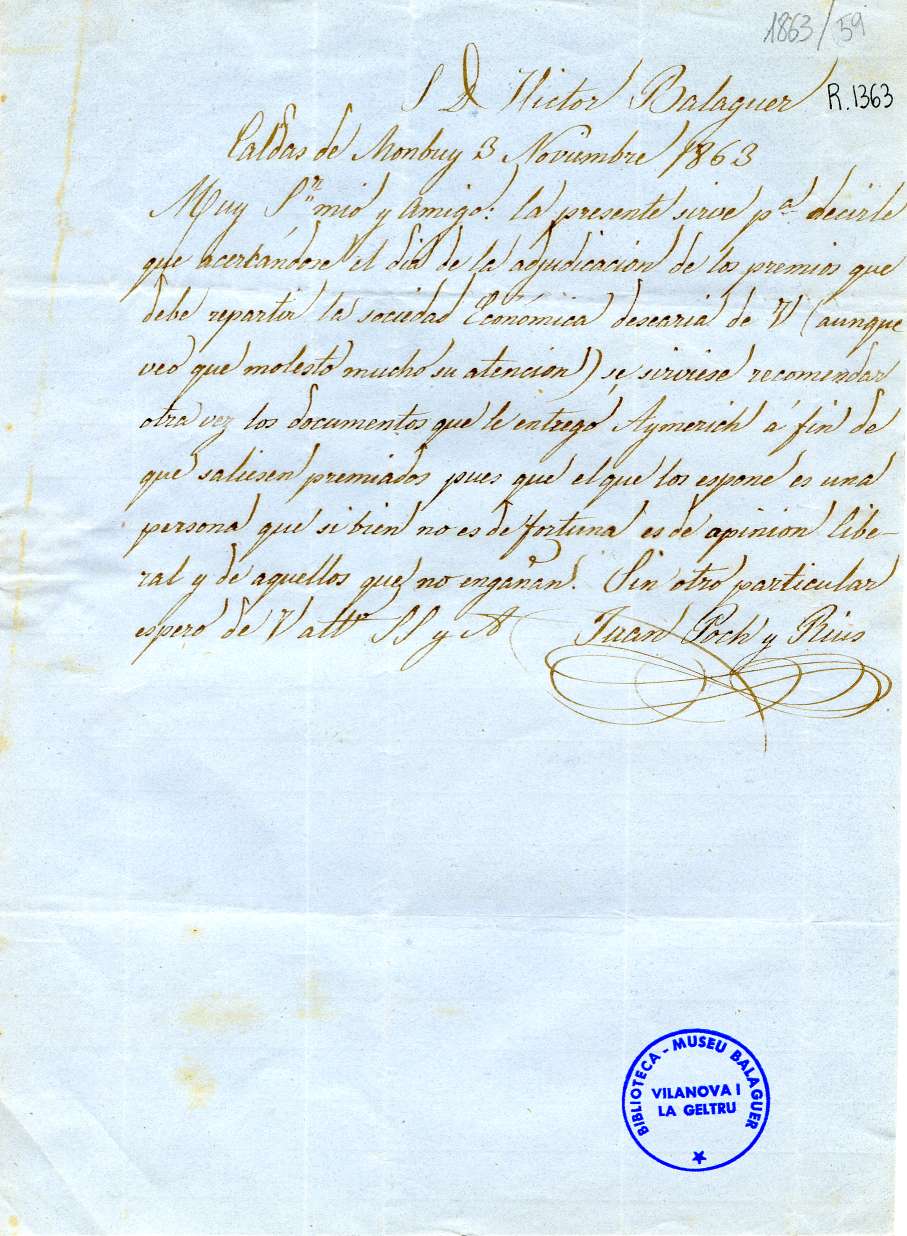 1863/59
R.1363
S D Victor Balaguer
Caldas de Monbuy 3 Noviembre 1863
Muy Sr mio y Amigo: la presente sirve pa decirle
que acercandose el dia de la adjudicacion de los premios que
debe repartir la sociedad Económica desearia de V (aunque
veo que molesto mucho su atencion) se sirviese recomendar
otra vez los documentos que le entregó Aymerich á fin de
que saliesen premiados pues que el que los espone es una
persona que si bien no es de fortuna es de opinion libe-
ral y de aquellos que no engañan. Sin otro particular
espero de V atto SS y A Juan Poch y Rius
BIBLIOTECA - MUSEU BALAGUER
VILANOVA I
LA GELTRU